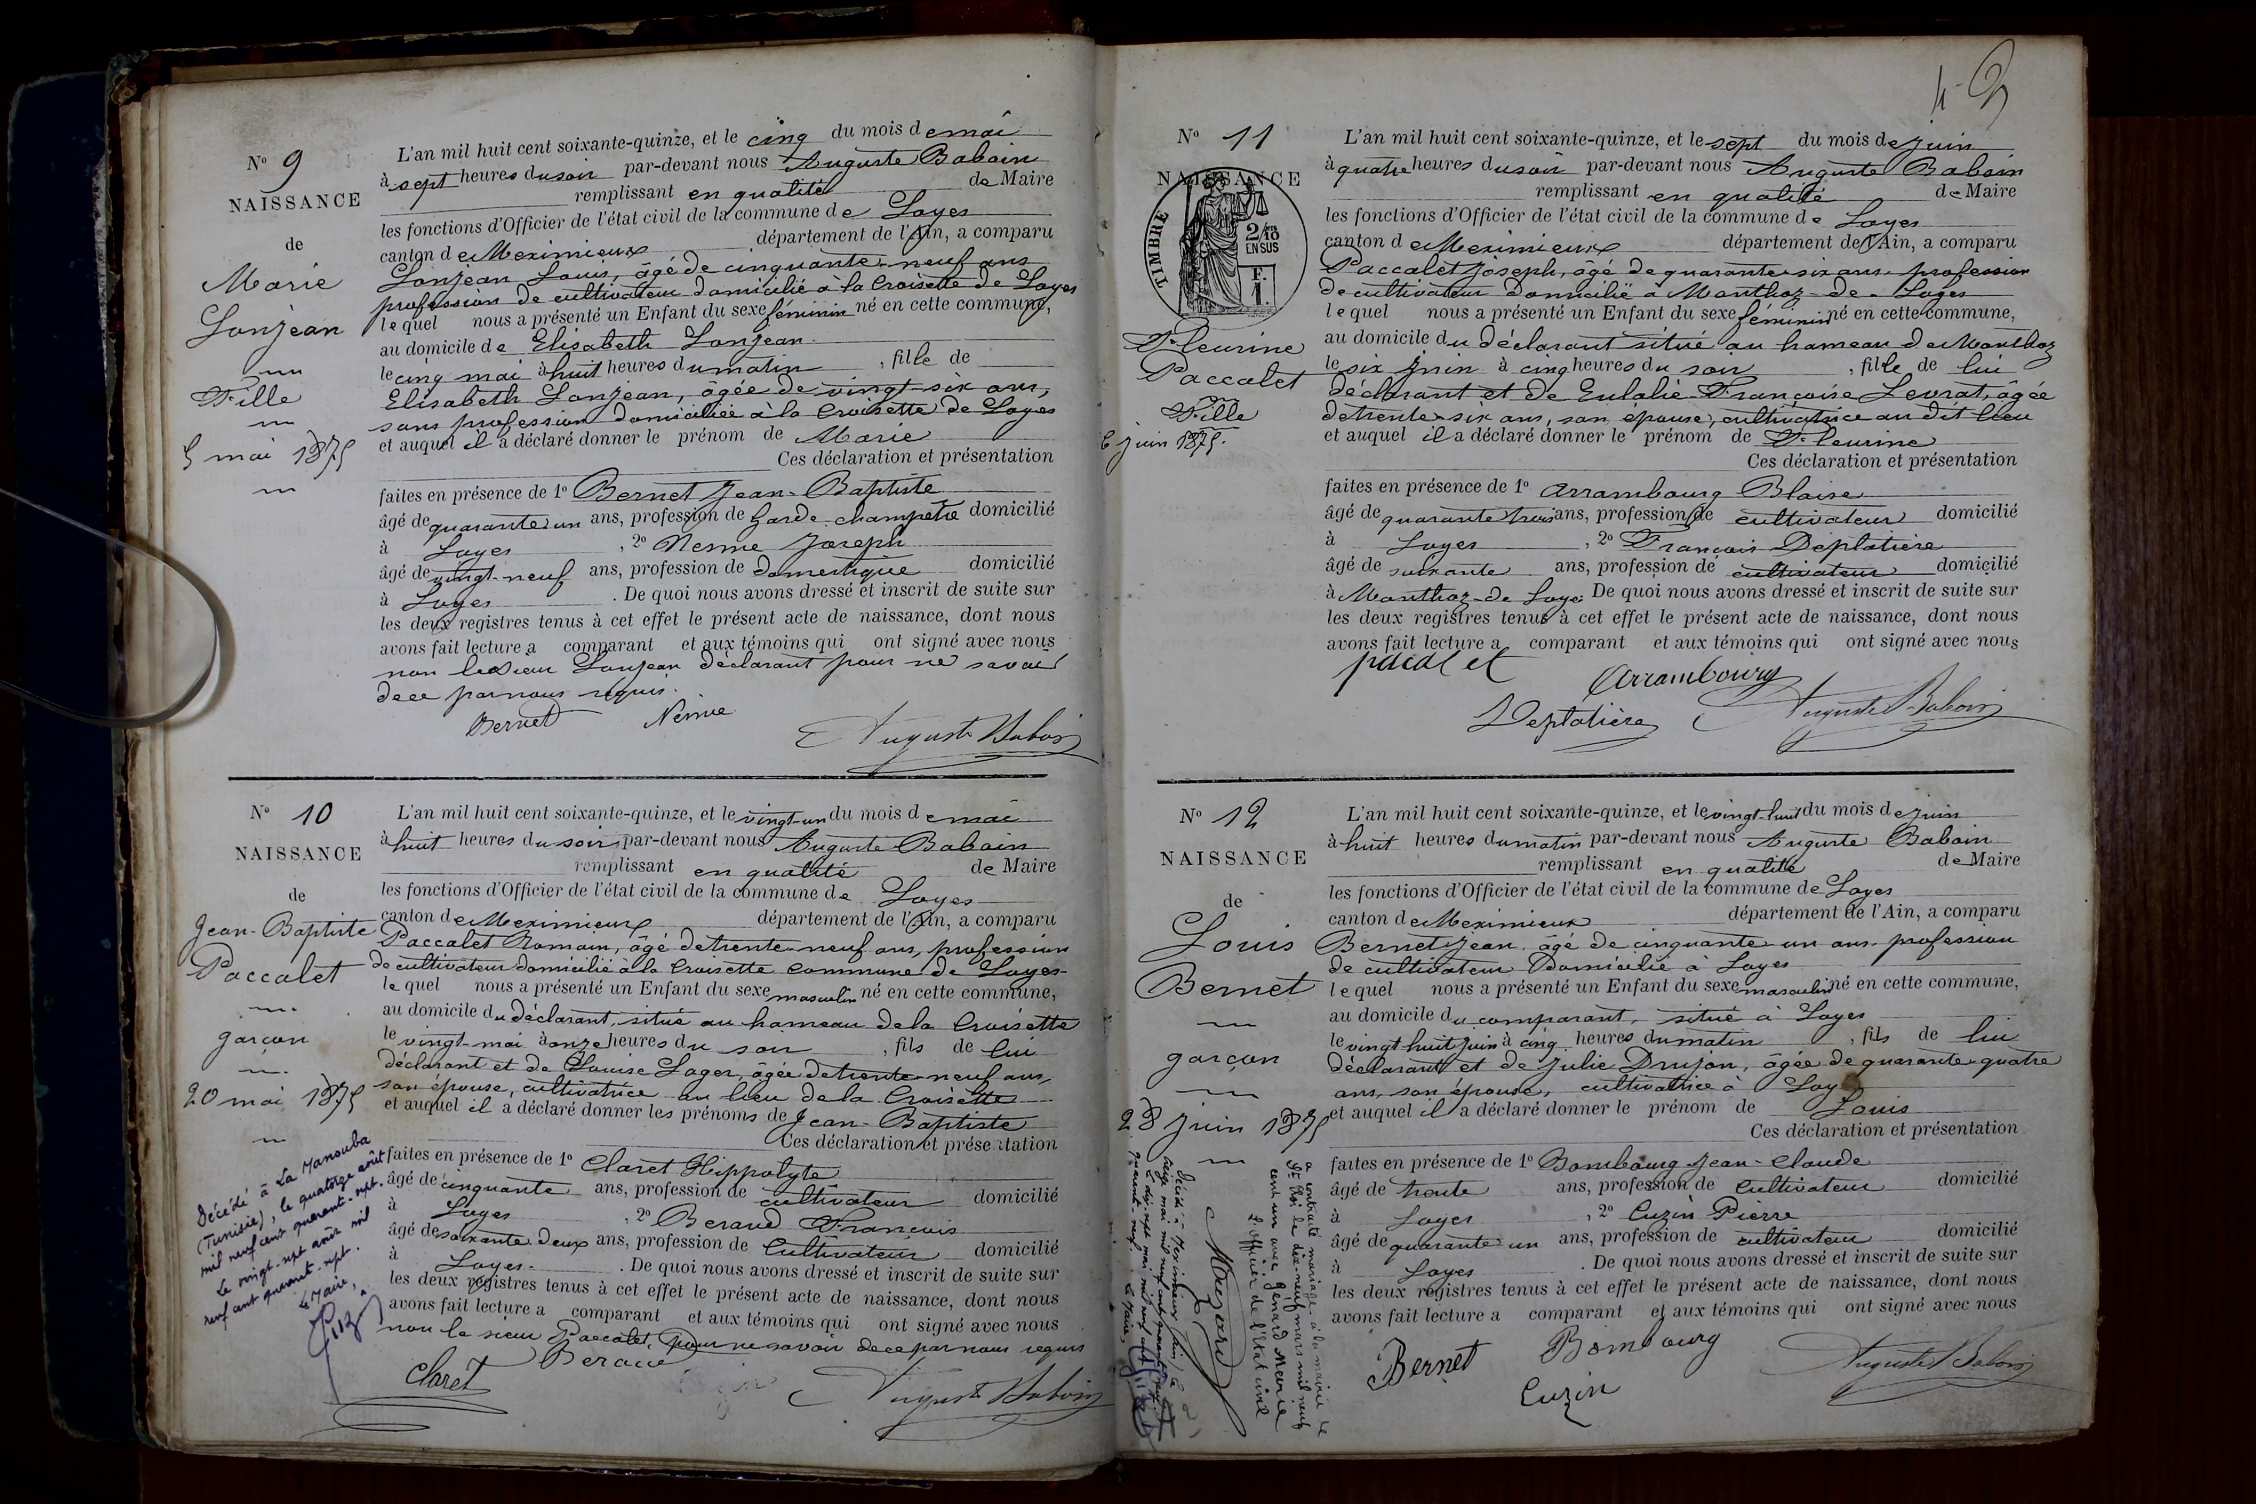 N° 9
NAISSANCE
de
Marie
Lonjean
Fille
5 mai 1875
L'an mil huit cent soixante-quinze, et le cinq du mois de mai
à sept heures du soir par-devant nous Auguste Baboin
remplissant en qualité de Maire
les fonctions d'Officier de l'état civil de la commune de Loyes
canton de Meximieux département de l'Ain, a comparu
Lonjean Louis, âgé de cinquante-neuf ans
profession de cultivateur domicilié a la Croisette de Loyes
lequel nous a présenté un Enfant du sexe féminin né en cette commune,
au domicile de Elisabeth Lonjean
le cinq mai à huit heures du matin, fille de
Elisabeth Lonjean, âgée de vingt-six ans,
sans profession domiciliée a la Croisette de Loyes
et auquel il a déclaré donner le prénom de Marie
Ces déclaration et présentation
faites en présence de 1° Bernet Jean-Baptiste
âgé de quarante un ans, profession de garde-champêtre domicilié
à Loyes, 2° Nesme Joseph
âgé de vingt-neuf ans, profession de domestique domicilié
à Loyes. De quoi nous avons dressé et inscrit de suite sur
les deux registres tenus à cet effet le présent acte de naissance, dont nous
avons fait lecture a comparant et aux témoins qui ont signé avec nous
non le sieur Lonjean déclarant pour ne savoir
de ce par nous requis.
Bernet Nesme
Auguste Baboin
N° 10
NAISSANCE
de
Jean-Baptiste
Paccalet
garçon
20 mai 1875
Décédé à La Manouba
(Tunisie), le quatorze août
mil neuf cent quarante-sept.
Le vingt-sept août mil
neuf cent quarante-sept.
Le Maire,
L'an mil huit cent soixante-quinze, et le vingt-un du mois de mai
à huit heures du soir par-devant nous Auguste Baboin
remplissant en qualité de Maire
les fonctions d'Officier de l'état civil de la commune de Loyes
canton de Meximieux département de l'Ain, a comparu
Paccalet Romain, âgé de trente-neuf ans, profession
de cultivateur domicilié à la Croisette commune de Loyes
lequel nous a présenté un Enfant du sexe masculin né en cette commune,
au domicile du déclarant, situé au hameau de la Croisette
le vingt-mai à onze heures du soir, fils de lui
déclarant et de Louise Loger, âgée de trente-neuf ans,
son épouse, cultivatrice au lieu de la Croisette
et auquel il a déclaré donner les prénoms de Jean-Baptiste
Ces déclaration et présentation
faites en présence de 1° Claret Hippolyte
âgé de cinquante ans, profession de cultivateur domicilié
à Loyes, 2° Beraud François
âgé de soixante deux ans, profession de Cultivateur domicilié
à Loyes. De quoi nous avons dressé et inscrit de suite sur
les deux registres tenus à cet effet le présent acte de naissance, dont nous
avons fait lecture a comparant et aux témoins qui ont signé avec nous
non le sieur Paccalet, pour ne savoir de ce par nous requis
Claret Beraud
Auguste Baboin
N° 11
NAISSANCE
TIMBRE
2/10
EN SUS
F.
1.
Fleurine
Paccalet
Fille
6 juin 1875.
L'an mil huit cent soixante-quinze, et le sept du mois de juin
à quatre heures du soir par-devant nous Auguste Baboin
remplissant en qualité de Maire
les fonctions d'Officier de l'état civil de la commune de Loyes
canton de Meximieux département de l'Ain, a comparu
Paccalet Joseph, âgé de quarante-six ans, profession
de cultivateur domicilié à Monthoz-de-Loyes
lequel nous a présenté un Enfant du sexe féminin né en cette commune,
au domicile du déclarant situé au hameau de Monthoz
le six juin à cinq heures du soir, fille de lui
déclarant et de Eulalie Françoise Levrat, âgée
de trente-six ans, son épouse, cultivatrice au dit lieu
et auquel il a déclaré donner le prénom de Fleurine
Ces déclaration et présentation
faites en présence de 1° Arrambourg Blaise
âgé de quarante trois ans, profession de cultivateur domicilié
à Loyes, 2° François Deplatière
âgé de soixante ans, profession de cultivateur domicilié
à Monthoz-de Loyes De quoi nous avons dressé et inscrit de suite sur
les deux registres tenus à cet effet le présent acte de naissance, dont nous
avons fait lecture a comparant et aux témoins qui ont signé avec nous
pacalet Arrambourg
Deplatière Auguste Baboin
N° 12
NAISSANCE
de
Louis
Bernet
garçon
28 juin 1875
a contracté mariage à la mairie de
le dix-neuf mars mil neuf
cent un avec Genard Marie
L'officier de l'état civil
Décédé à Meximieux (Ain) le
mai mil neuf cent quarante-neuf.
Le dix-sept mai mil neuf cent
quarante-neuf. Le Maire,
L'an mil huit cent soixante-quinze, et le vingt-huit du mois de juin
à huit heures du matin par-devant nous Auguste Baboin
remplissant en qualité de Maire
les fonctions d'Officier de l'état civil de la commune de Loyes
canton de Meximieux département de l'Ain, a comparu
Bernet Jean, âgé de cinquante-un ans, profession
de cultivateur Domicilié à Loyes
lequel nous a présenté un Enfant du sexe masculin né en cette commune,
au domicile du comparant, situé à Loyes
le vingt huit juin à cinq heures du matin, fils de lui
déclarant et de Julie Drujon, âgée de quarante-quatre
ans, son épouse, cultivatrice à Loy
et auquel il a déclaré donner le prénom de Louis
Ces déclaration et présentation
faites en présence de 1° Bombourg Jean-Claude
âgé de trente ans, profession de Cultivateur domicilié
à Loyes, 2° Cuzin Pierre
âgé de quarante un ans, profession de cultivateur domicilié
à Loyes. De quoi nous avons dressé et inscrit de suite sur
les deux registres tenus à cet effet le présent acte de naissance, dont nous
avons fait lecture a comparant et aux témoins qui ont signé avec nous
Bernet Bombourg
Cuzin Auguste Baboin